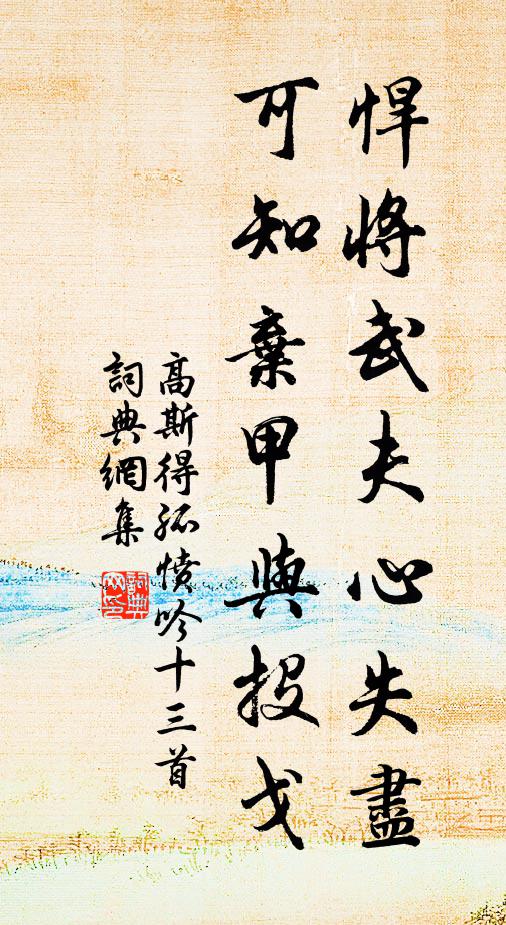 悍將武夫心失盡
可知棄甲與投戈
高斯得孤憤吟十三首
詞典網集